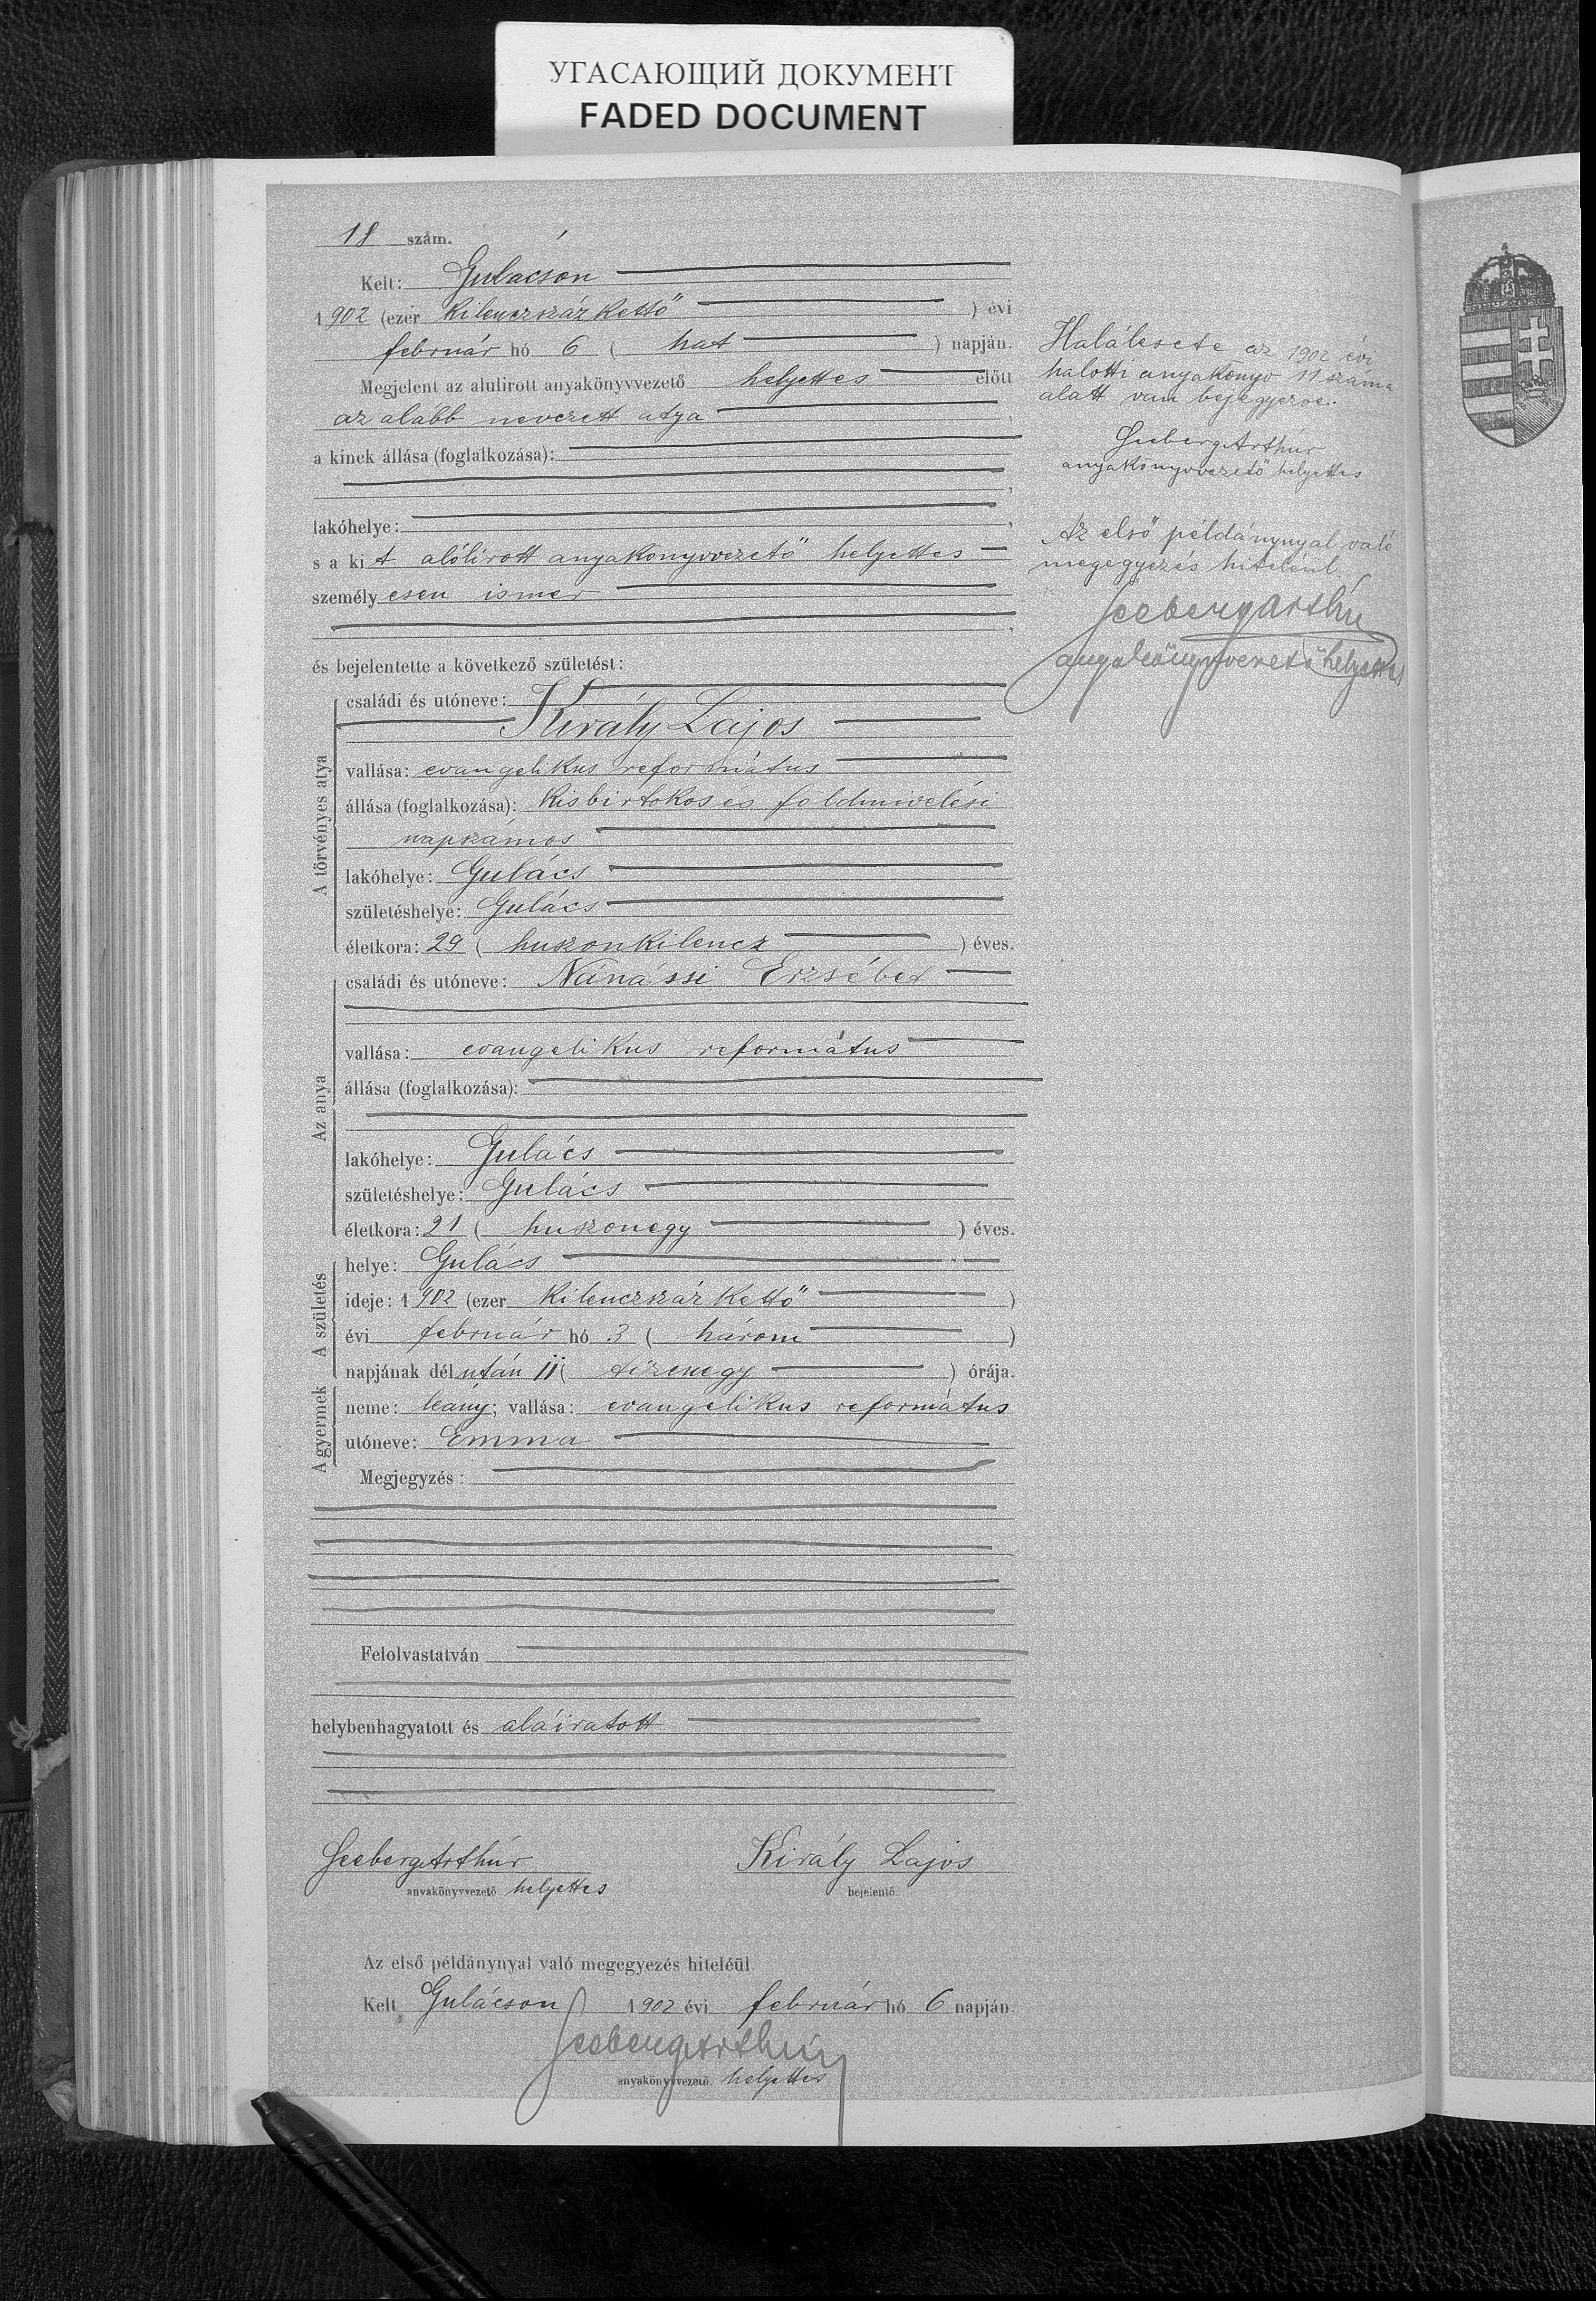 УГАСАЮЩИЙ ДОКУМЕНТ
FADED DOCUMENT
18 szám.
Kelt: Gulácson
1902 (ezer kilenczszáz kettő) évi
február hó 6 (hat) napján.
Megjelent az alulirott anyakönyvvezető helyettes előtt
az alább nevezett atya,
a kinek állása (foglalkozása):
,
lakóhelye: ,
s a kit alólirott anyakönyvvezető helyettes
személyesen ismer
,
és bejelentette a következő születést:
A törvényes atya
családi és utóneve:
Király Lajos
vallása: evangelikus református
állása (foglalkozása): kisbirtokos és földmivelési
napszámos
lakóhelye: Gulács
születéshelye: Gulács
életkora: 29 (huszonkilencz) éves.
Az anya
családi és utóneve: Nánássi Erzsébet
vallása: evangelikus református
állása (foglalkozása):
lakóhelye: Gulács
születéshelye: Gulács
életkora: 21 (huszonegy) éves.
A születés
helye: Gulács
ideje: 1902 (ezer kilenczszáz kettő)
évi február hó 3 (három)
napjának délután 11 (tizenegy) órája.
A gyermek
neme: leány; vallása: evangelikus református
utóneve: Emma
Megjegyzés:
Felolvastatván
helybenhagyatott és aláiratott
Seeberg Arthúr
anyakönyvvezető helyettes
Király Lajos
bejelentő.
Az első példánynyal való megegyezés hiteléül.
Kelt Gulácson 1902 évi február hó 6 napján.
Seeberg Arthúr
anyakönyvvezető. helyettes
Halálesete az 1902 évi
halotti anyakönyv 11 száma
alatt van bejegyezve.
Seeberg Arthúr
anyakönyvvezető helyettes
Az első példánynyal való
megegyezés hiteléül
Seeberg Arthúr
anyakönyvvezető helyettes